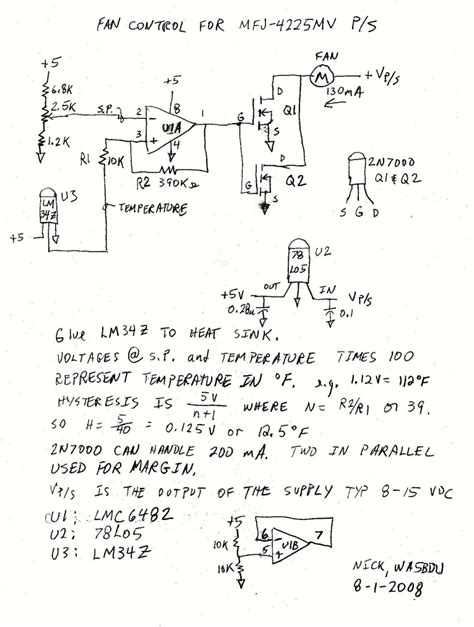 FAN CONTROL FOR MFJ-4225MV P/S
+5
6.8K
2.5K
1.2K
S.P.
2
3
8
+5
U1A
1
4
R1
10K
R2 390KΩ
TEMPERATURE
U3
LM
34Z
+5
FAN
M
+VP/S
130MA
D
G
Q1
S
D
G
Q2
S
2N7000
Q1 & Q2
S G D
U2
78
L05
+5V
OUT
IN
VP/S
0.28u
0.1
Glue LM34Z TO HEAT SINK.
VOLTAGES @ S.P. and TEMPERATURE TIMES 100
REPRESENT TEMPERATURE IN °F. e.g. 1.12V = 112°F
HYSTERESIS IS 5V/n+1 WHERE N = R2/R1 or 39.
SO H = 5/40 = 0.125V or 12.5°F
2N7000 CAN HANDLE 200 mA. TWO IN PARALLEL
USED FOR MARGIN.
VP/S IS THE OUTPUT OF THE SUPPLY TYP 8-15 VDC
U1: LMC6482
U2: 78L05
U3: LM34Z
+5
10K
10K
6
5
U1B
7
NICK, WA5BDU
8-1-2008